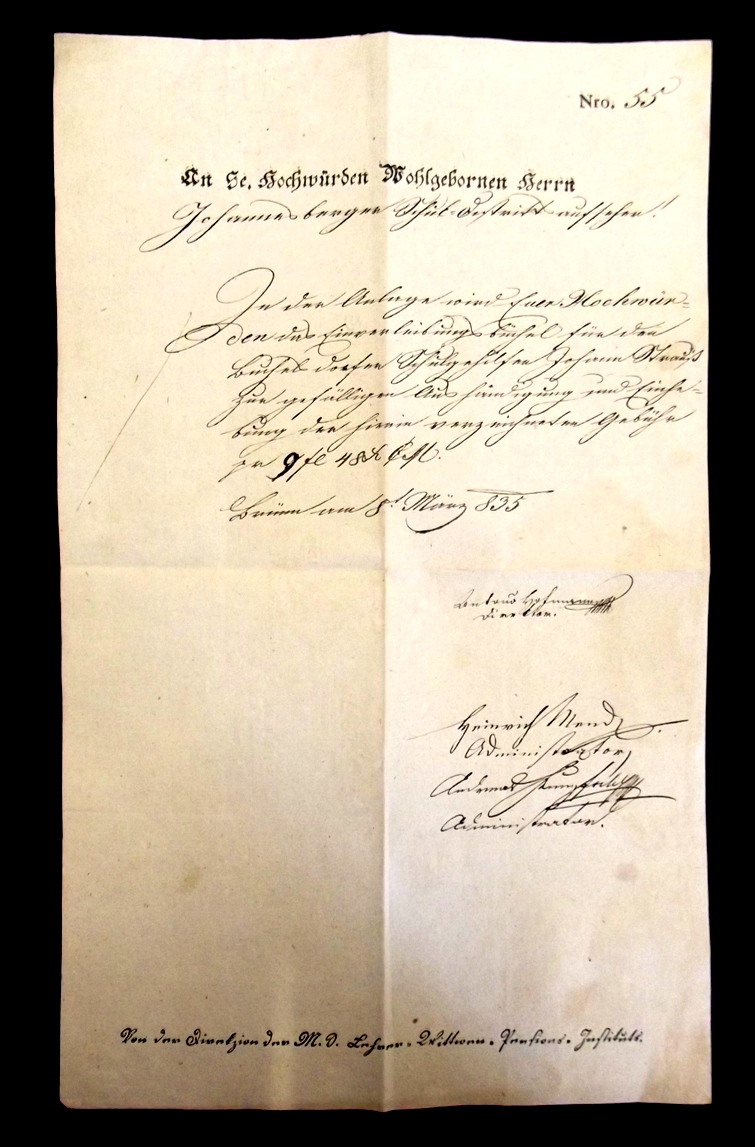 Nro. 55
An Se. Hochwürden Wohlgebornen Herrn
Johannesberger Schul-Distrikts-aufseher!
In der Anlage wird Euer Hochwür=
den das Einverleibungsbüchel für den
Buchelsdorfer Schulgehilfen Johann Strauß
zur gefälligen Aushändigung und Einhe=
bung der hierin verzeichneten Gebühr
pr 9 fl 48 x CM.
Brünn am 8t März 835
Hofmann
Direktor.
Heinrich
Administrator
Andreas
Administrator.
Von der Direkzion der M. S. Lehrer-Wittwen-Pensions-Instituts.